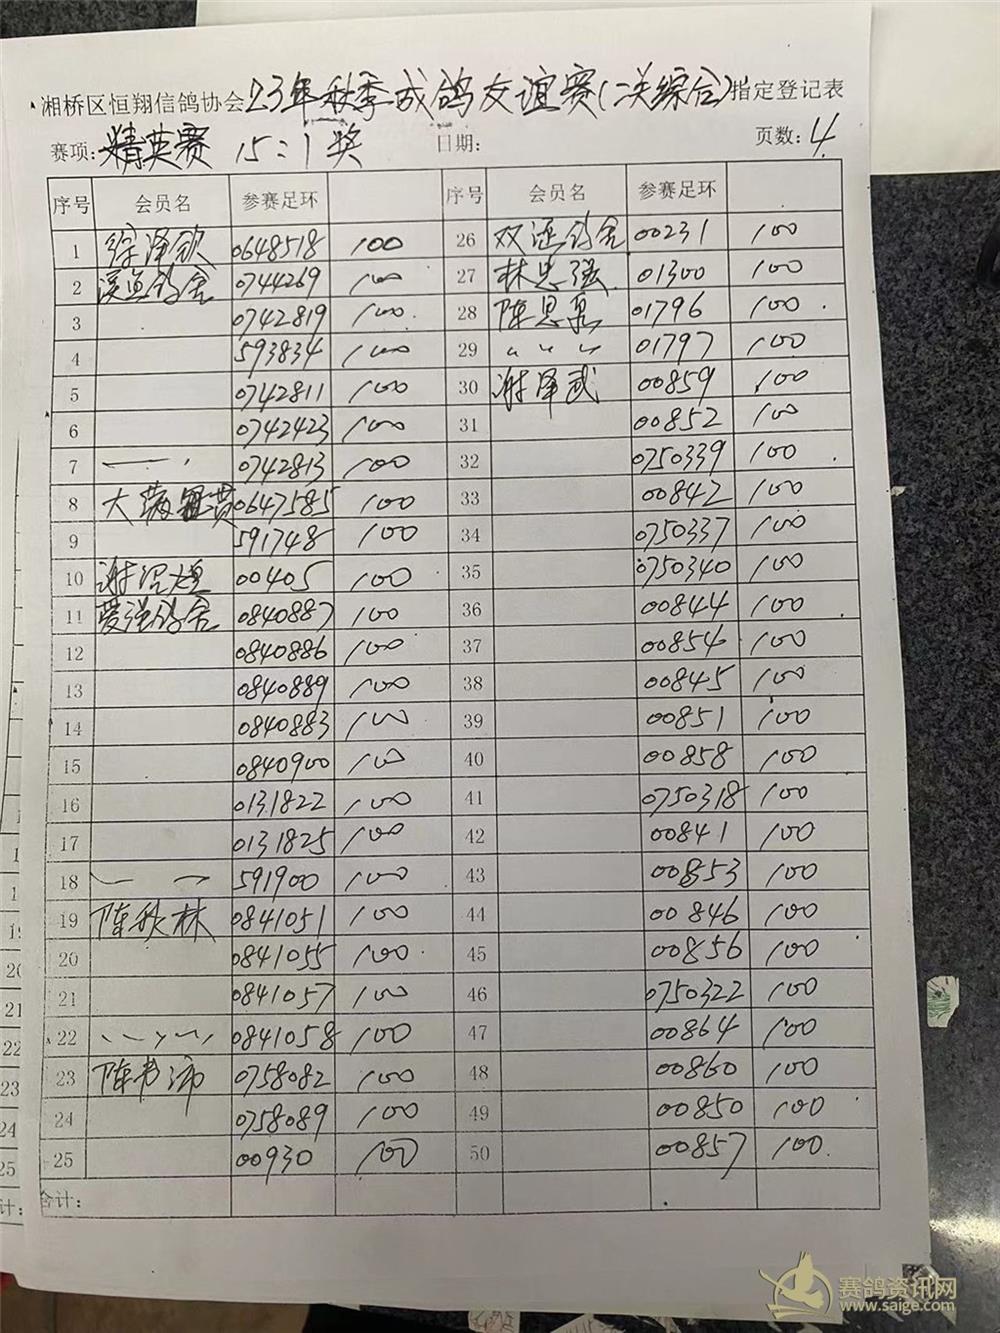 湘桥区恒翔信鸽协会23年秋季成鸽友谊赛(二关综合)指定登记表
赛项:精英赛 15:1奖 日期: 页数:4
序号 会员名 参赛足环 序号 会员名 参赛足环
1 徐泽钦 0648518 100 26 双涯鸽舍 00231 100
2 溪鱼鸽舍 0744269 100 27 林忠强 01300 100
3 0742819 100 28 陈思泉 01796 100
4 593834 100 29 〃 〃 〃 01797 100
5 0742811 100 30 谢泽武 00859 100
6 0742423 100 31 00852 100
7 0742813 100 32 0750339 100
8 0647585 100 33 00842 100
9 591748 100 34 0750337 100
10 00405 100 35 0750340 100
11 0840887 100 36 00844 100
12 0840886 100 37 00854 100
13 0840889 100 38 00845 100
14 0840883 100 39 00851 100
15 0840900 100 40 00858 100
16 0131822 100 41 0750318 100
17 0131825 100 42 00841 100
18 591900 100 43 00853 100
19 陈秋林 0841051 100 44 00846 100
20 0841055 100 45 00856 100
21 0841057 100 46 0750322 100
22 0841058 100 47 00864 100
23 0758082 100 48 00860 100
24 0758089 100 49 00850 100
25 00930 100 50 00857 100
合计:
赛鸽资讯网
www.saige.com